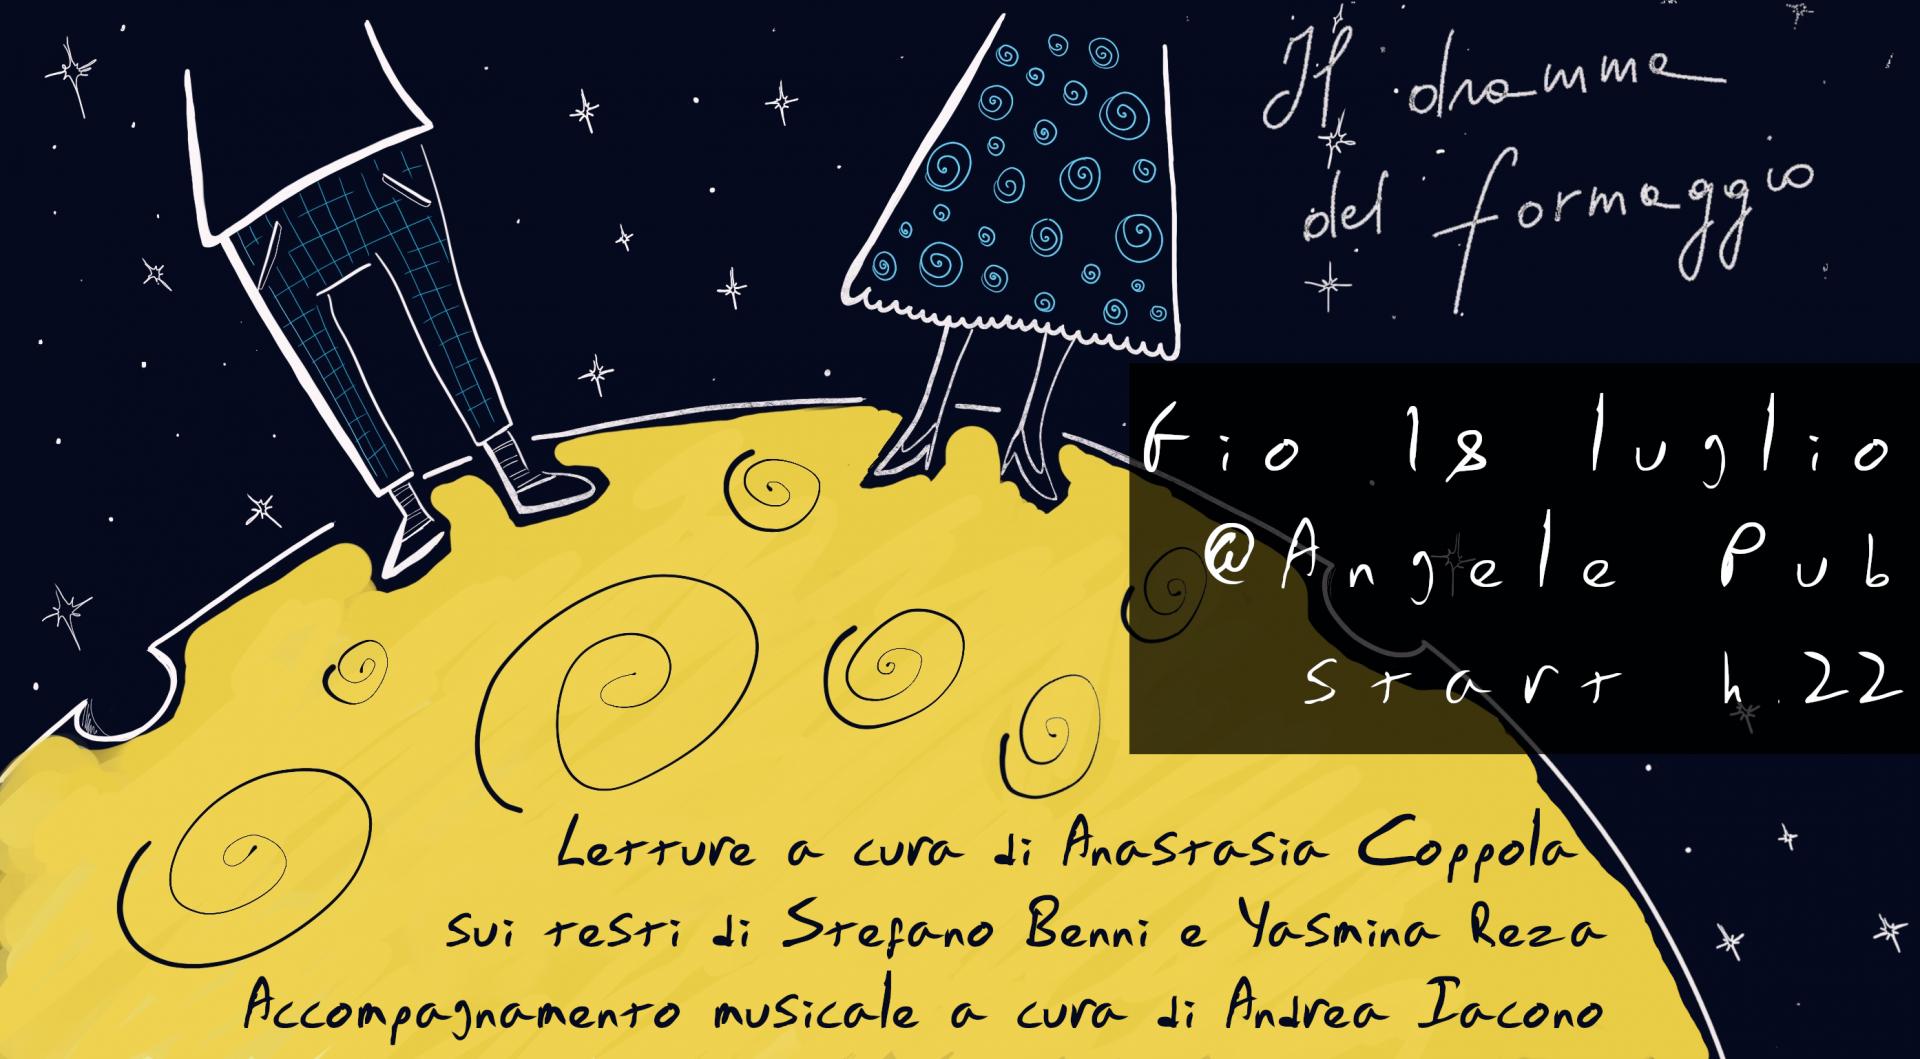 Il dramma
del formaggio
Gio 18 luglio
@Angele Pub
start h.22
Letture a cura di Anastasia Coppola
sui testi di Stefano Benni e Yasmina Reza
Accompagnamento musicale a cura di Andrea Iacono